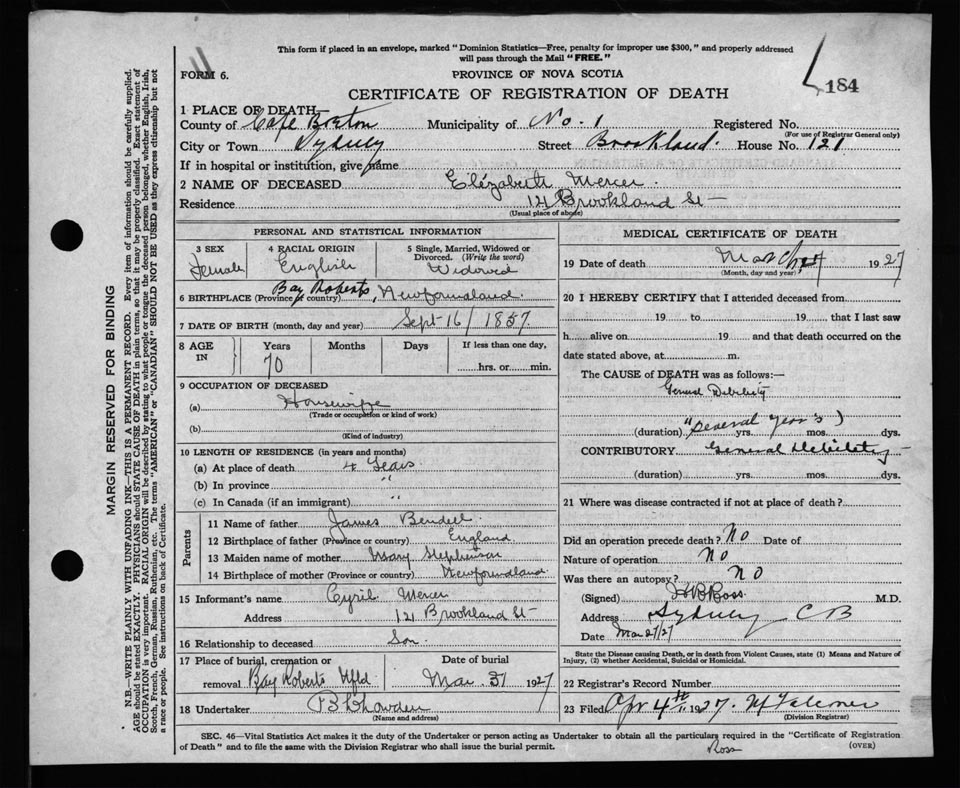 This form if placed in an envelope, marked "Dominion Statistics—Free, penalty for improper use $300," and properly addressed
will pass through the Mail "FREE."
FORM 6.
PROVINCE OF NOVA SCOTIA
184
CERTIFICATE OF REGISTRATION OF DEATH
1 PLACE OF DEATH—
County of Cape Breton Municipality of No. 1 Registered No.
(For use of Registrar General only)
City or Town Sydney Street Brookland. House No. 121
If in hospital or institution, give name
2 NAME OF DECEASED Elizabeth Mercer.
Residence 121 Brookland St
(Usual place of abode)
PERSONAL AND STATISTICAL INFORMATION
3 SEX 4 RACIAL ORIGIN 5 Single, Married, Widowed or
Divorced. (Write the word)
Female English Widowed
6 BIRTHPLACE (Province or country) Bay Roberts, Newfoundland.
7 DATE OF BIRTH (month, day and year) Sept 16/1857.
8 AGE IN Years Months Days If less than one day,
70 hrs. or min.
9 OCCUPATION OF DECEASED
(a) Housewife
(Trade or occupation or kind of work)
(b)
(Kind of industry)
10 LENGTH OF RESIDENCE (in years and months)
(a) At place of death 4 Years
(b) In province "
(c) In Canada (if an immigrant) "
Parents
11 Name of father James Bendell.
12 Birthplace of father (Province or country) England
13 Maiden name of mother Mary Stephenson
14 Birthplace of mother (Province or country) Newfoundland.
15 Informant's name Cyril Mercer
Address 121 Brookland St
16 Relationship to deceased Son.
17 Place of burial, cremation or Date of burial
removal Bay Roberts Nfld. Mar. 31 1927
18 Undertaker
(Name and address)
MEDICAL CERTIFICATE OF DEATH
19 Date of death March 1927
(Month, day and year)
20 I HEREBY CERTIFY that I attended deceased from
19 to 19 that I last saw
h alive on 19 and that death occurred on the
date stated above, at m.
The CAUSE of DEATH was as follows:—
General Debility
"Several years)
(duration) yrs. mos. dys.
CONTRIBUTORY General Debility
(duration) yrs. mos. dys.
21 Where was disease contracted if not at place of death?
Did an operation precede death? No Date of
Nature of operation No
Was there an autopsy? No
(Signed) Ross M.D.
Address Sydney CB
Date Mar 27/27
State the Disease causing Death, or in death from Violent Causes, state (1) Means and Nature of
Injury, (2) whether Accidental, Suicidal or Homicidal.
22 Registrar's Record Number
23 Filed Apr 4th 1927.
(Division Registrar)
SEC. 46—Vital Statistics Act makes it the duty of the Undertaker or person acting as Undertaker to obtain all the particulars required in the "Certificate of Registration
of Death" and to file the same with the Division Registrar who shall issue the burial permit.
Ross
(OVER)
MARGIN RESERVED FOR BINDING
N.B.—WRITE PLAINLY WITH UNFADING INK—THIS IS A PERMANENT RECORD. Every item of information should be carefully supplied.
AGE should be stated EXACTLY. PHYSICIANS should STATE CAUSE OF DEATH in plain terms, so that it may be properly classified. Exact statement of
OCCUPATION is very important. RACIAL ORIGIN will be described by stating to what people or tongue the deceased person belonged, whether English, Irish,
Scotch, French, German, Russian, Ruthenian, etc. The terms "AMERICAN" or "CANADIAN" SHOULD NOT BE USED as they express citizenship but not
a race or people. See instructions on back of Certificate.